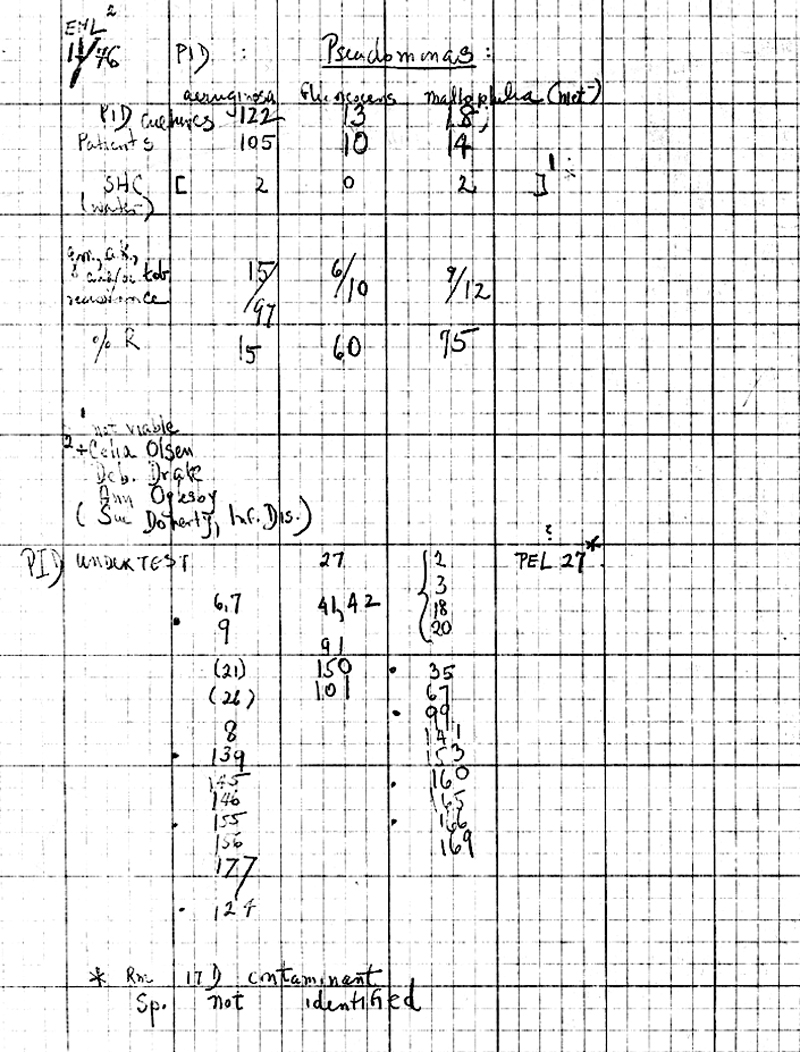 EHL 2
11/76 PID : Pseudominas :
aeruginosa fluorescens maltophilia (met-)
PID cultures 122 13 18;
Patients 105 10 14
SHC [ 2 0 2 ] 1
(water)
gm, ak,
& and/or tob 15/97 6/10 9/12
resistance
% R 15 60 75
1 not viable
2 + Celia Olsen
Deb. Drake
Ann Oglesby
(Sue Doherty, Inf. Dis.)
PID UNDER TEST 27 { 2 PEL 27*
3
6,7 41,42 18
• 9 20
91
(21) 150 • 35
(26) 101 67
• 99
8 141
• 139 153
145 • 160
146 165
• 155 • 166
156 169
177
• 124
* Rm 17D contaminant
Sp. not identified